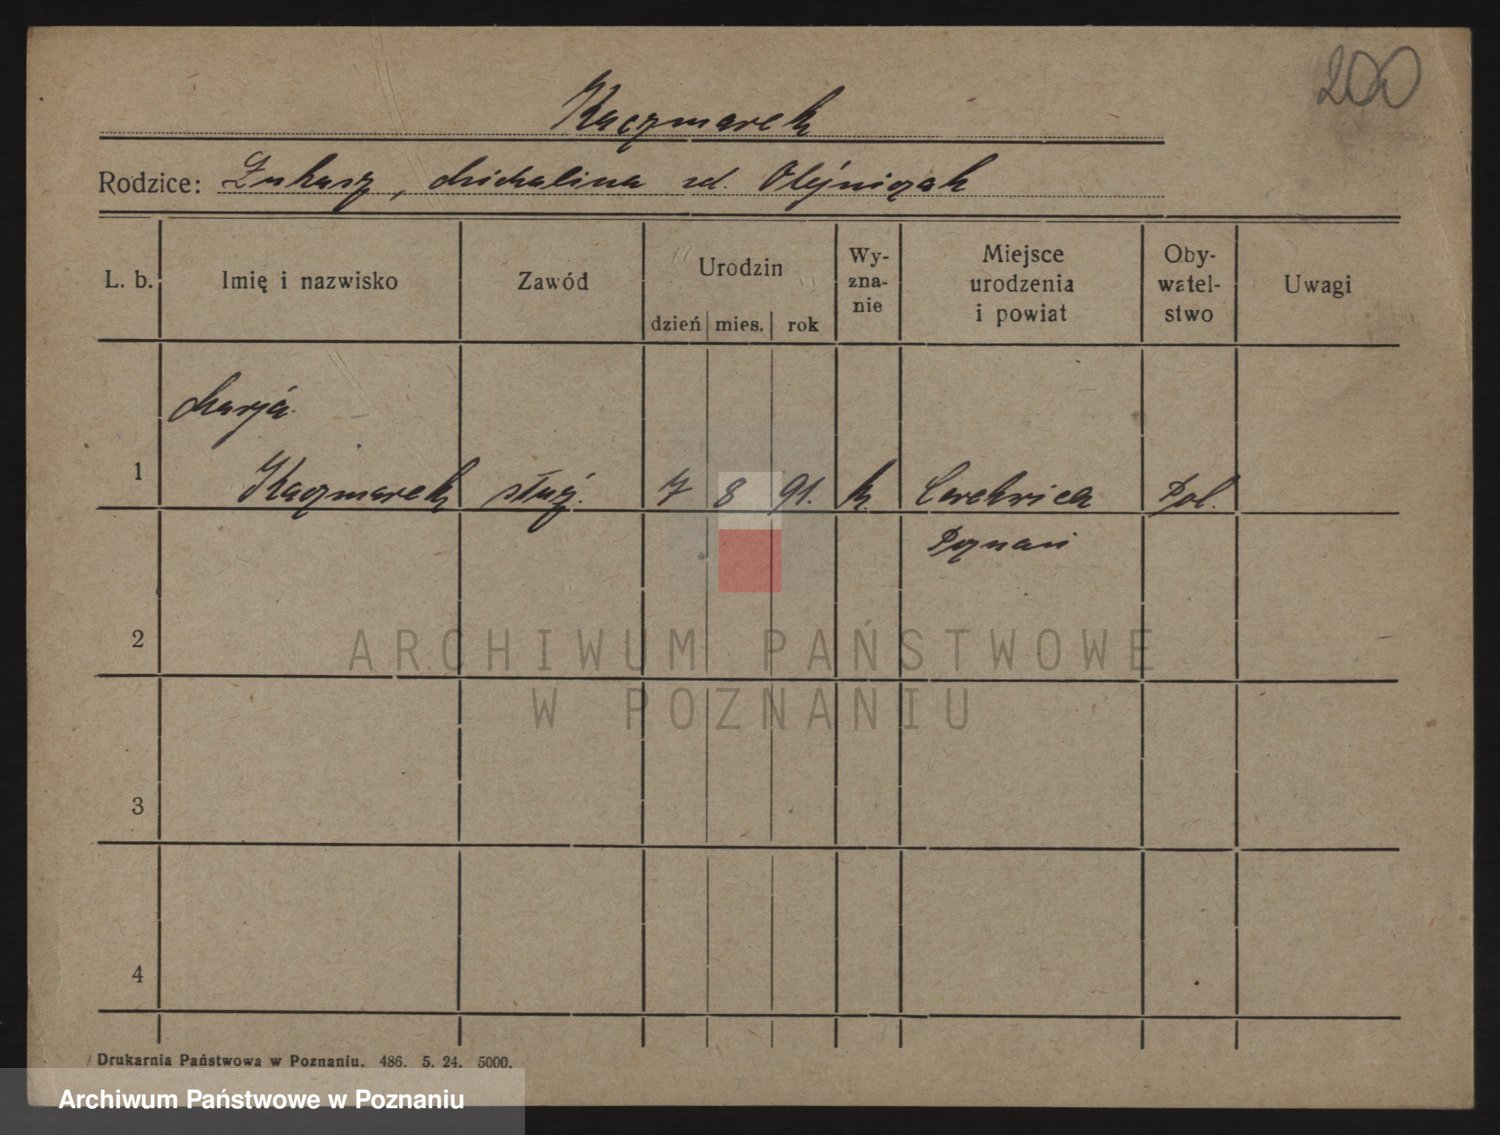 200
Kaczmarek
Rodzice: Łukasz, Michalina zd. Olejniczak
L. b.
Imię i nazwisko
Zawód
Urodzin
dzień mies. rok
Wy-
zna-
nie
Miejsce
urodzenia
i powiat
Oby-
watel-
stwo
Uwagi
Marja
1 Kaczmarek służ. 7 8 91. k. Cerekwica Pol.
Poznań
2
ARCHIWUM PAŃSTWOWE
W POZNANIU
3
4
Drukarnia Państwowa w Poznaniu. 486. 5. 24. 5000.
Archiwum Państwowe w Poznaniu